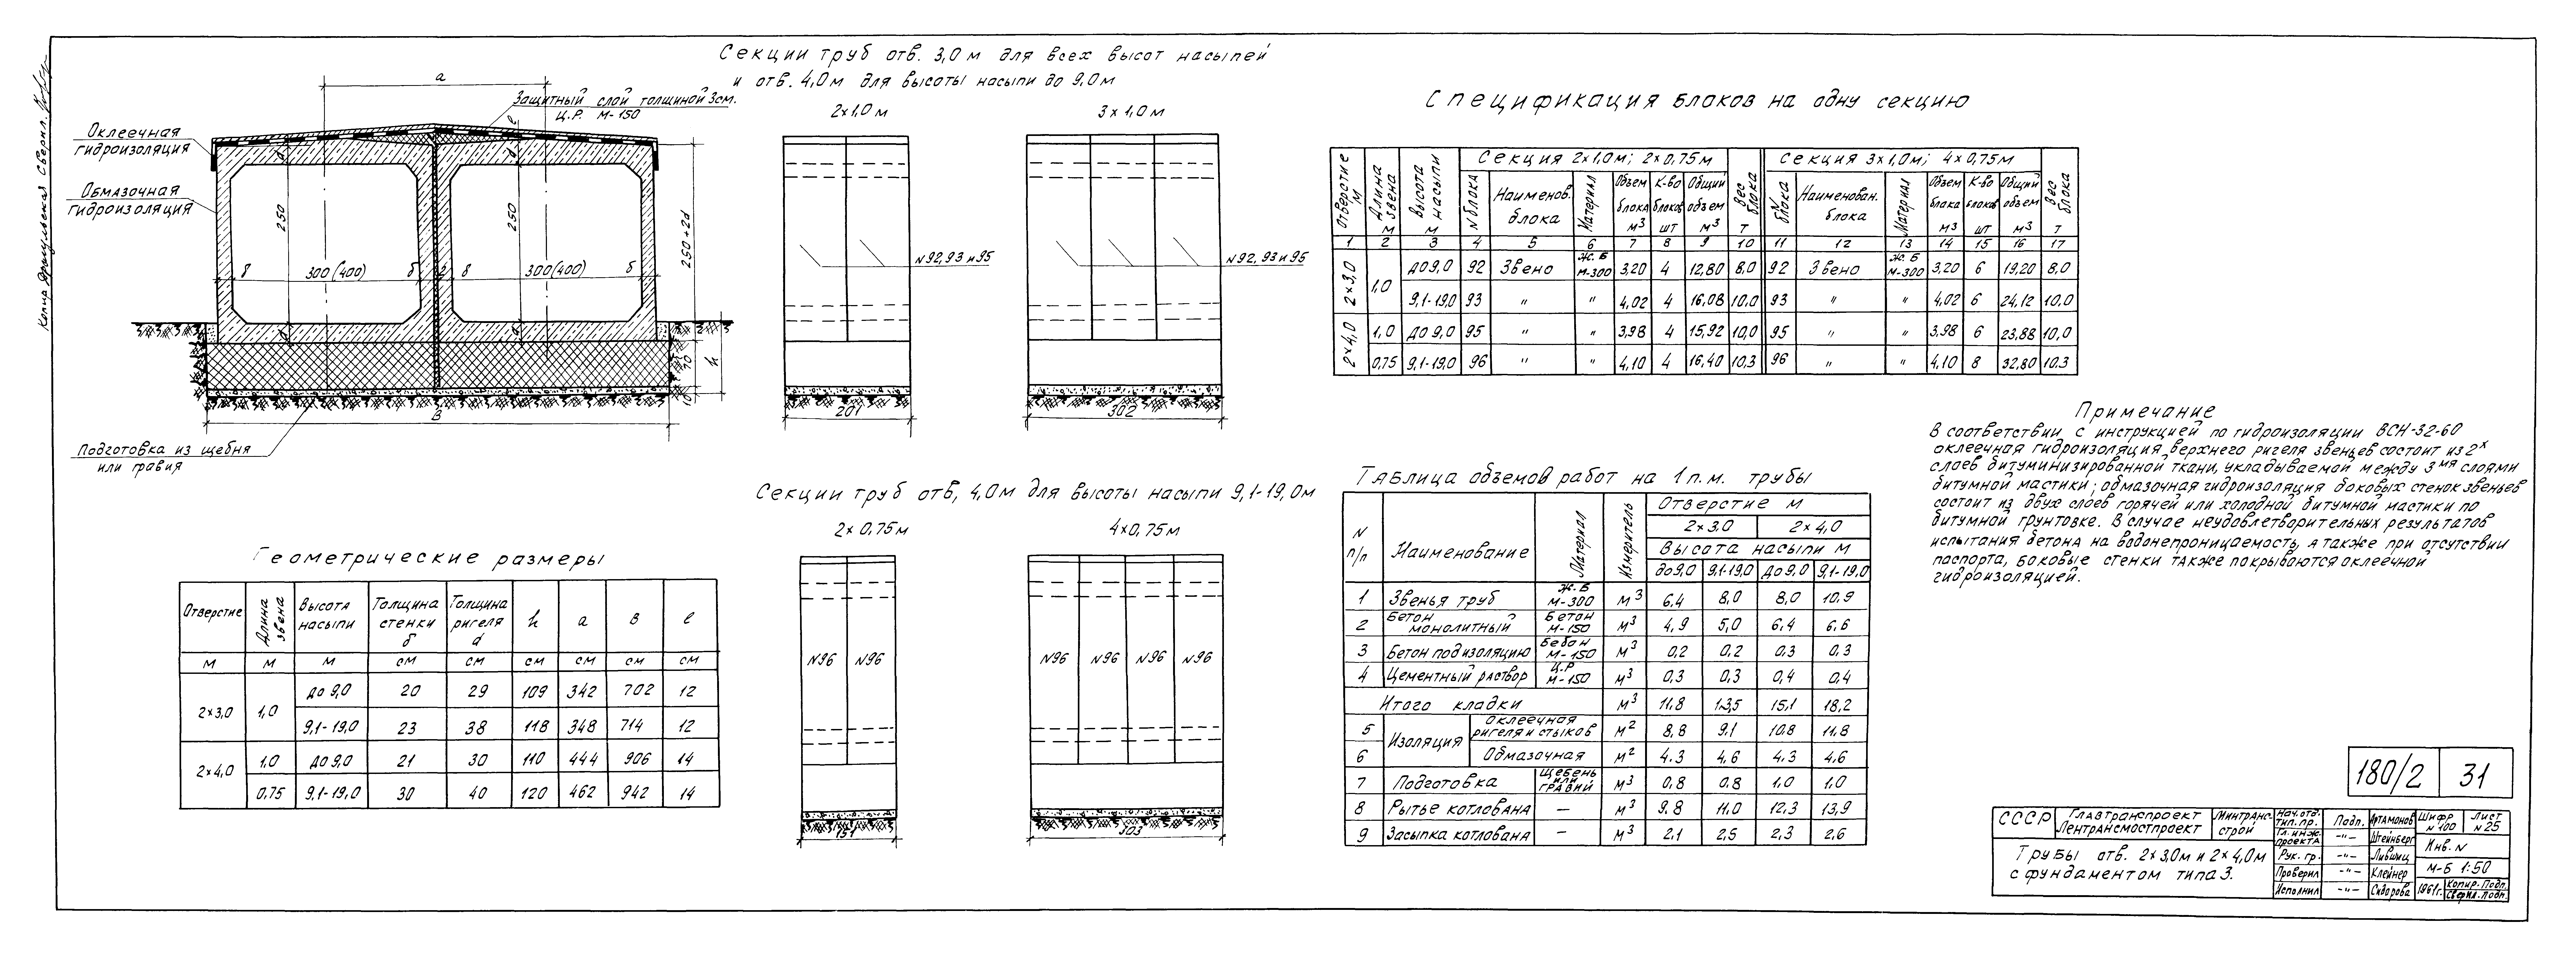 Секции труб отв. 3,0 м для всех высот насыпей
и отв. 4,0 м для высоты насыпи до 9,0 м
2×1,0 м
3×1,0 м
a
Защитный слой толщиной 3 см.
Ц.Р. М-150
Оклеечная
гидроизоляция
Обмазочная
гидроизоляция
250
250
250+2d
300(400)
300(400)
70
h
10
В
Подготовка из щебня
или гравия
N92,93 и 95
N92,93 и 95
201
302
Секции труб отв, 4,0 м для высоты насыпи 9,1-19,0 м
2×0,75 м
4×0,75 м
N96 N96
N96 N96 N96 N96
151
303
Геометрические размеры
Отверстие | Длина звена | Высота насыпи | Толщина стенки δ | Толщина ригеля d | h | a | в | e
м | м | м | см | см | см | см | см | см
2×3,0 | 1,0 | до 9,0 | 20 | 29 | 109 | 342 | 702 | 12
9,1-19,0 | 23 | 38 | 118 | 348 | 714 | 12
2×4,0 | 1,0 | до 9,0 | 21 | 30 | 110 | 444 | 906 | 14
0,75 | 9,1-19,0 | 30 | 40 | 120 | 462 | 942 | 14
Спецификация блоков на одну секцию
Отверстие м | Длина звена м | Высота насыпи м | Секция 2×1,0 м; 2×0,75 м | Вес блока т | Секция 3×1,0 м; 4×0,75 м | Вес блока т
N блока | Наименов. блока | Материал | Объем блока м³ | К-во блоков шт | Общий объем м³ | N блока | Наименован. блока | Материал | Объем блока м³ | К-во блоков шт | Общий объем м³
1 | 2 | 3 | 4 | 5 | 6 | 7 | 8 | 9 | 10 | 11 | 12 | 13 | 14 | 15 | 16 | 17
2×3,0 | 1,0 | до 9,0 | 92 | Звено | Ж.Б М-300 | 3,20 | 4 | 12,80 | 8,0 | 92 | Звено | Ж.Б М-300 | 3,20 | 6 | 19,20 | 8,0
9,1-19,0 | 93 | " | " | 4,02 | 4 | 16,08 | 10,0 | 93 | " | " | 4,02 | 6 | 24,12 | 10,0
2×4,0 | 1,0 | до 9,0 | 95 | " | " | 3,98 | 4 | 15,92 | 10,0 | 95 | " | " | 3,98 | 6 | 23,88 | 10,0
0,75 | 9,1-19,0 | 96 | " | " | 4,10 | 4 | 16,40 | 10,3 | 96 | " | " | 4,10 | 8 | 32,80 | 10.3
Примечание
В соответствии с инструкцией по гидроизоляции ВСН-32-60
оклеечная гидроизоляция верхнего ригеля звеньев состоит из 2х
слоев битуминизированной ткани, укладываемой между 3мя слоями
битумной мастики; обмазочная гидроизоляция боковых стенок звеньев
состоит из двух слоев горячей или холодной битумной мастики по
битумной грунтовке. В случае неудовлетворительных результатов
испытания бетона на водонепроницаемость, а также при отсутствии
паспорта, боковые стенки также покрываются оклеечной
гидроизоляцией.
Таблица объемов работ на 1 п.м. трубы
N п/п | Наименование | Материал | Измеритель | Отверстие м
2×3.0 | 2×4,0
Высота насыпи м
до 9,0 | 9,1-19,0 | до 9,0 | 9,1-19,0
1 | Звенья труб | Ж.Б М-300 | м³ | 6,4 | 8,0 | 8,0 | 10,9
2 | Бетон монолитный | Бетон М-150 | м³ | 4,9 | 5,0 | 6,4 | 6,6
3 | Бетон под изоляцию | Бетон М-150 | м³ | 0,2 | 0,2 | 0,3 | 0,3
4 | Цементный раствор | Ц.Р М-150 | м³ | 0,3 | 0,3 | 0,4 | 0,4
Итого кладки | м³ | 11,8 | 13,5 | 15,1 | 18,2
5 | Изоляция | Оклеечная ригеля и стыков | м² | 8,8 | 9,1 | 10,8 | 11,8
6 | Обмазочная | м² | 4.3 | 4,6 | 4,3 | 4,6
7 | Подготовка | Щебень или гравий | м³ | 0,8 | 0,8 | 1,0 | 1,0
8 | Рытье котлована | — | м³ | 9.8 | 11.0 | 12.3 | 13,9
9 | Засыпка котлована | — | м³ | 2.1 | 2,5 | 2,3 | 2,6
180/2 | 31
СССР | Главтранспроект Лентрансмостпроект | Минтрансстрой
Трубы отв. 2×3,0м и 2×4,0м
с фундаментом типа 3.
Нач. отд. тип. пр. | Подп. | Артамонов
Гл. инж. проекта | -"- | Штейнберг
Рук. гр. | -"- | Лившиц
Проверил | -"- | Клейнер
Исполнил | -"- | Сидорова
Шифр N 100 | Лист N 25
Инв. N
М-Б 1:50
1961г. | Копир. Подп.
Сверил. Подп.